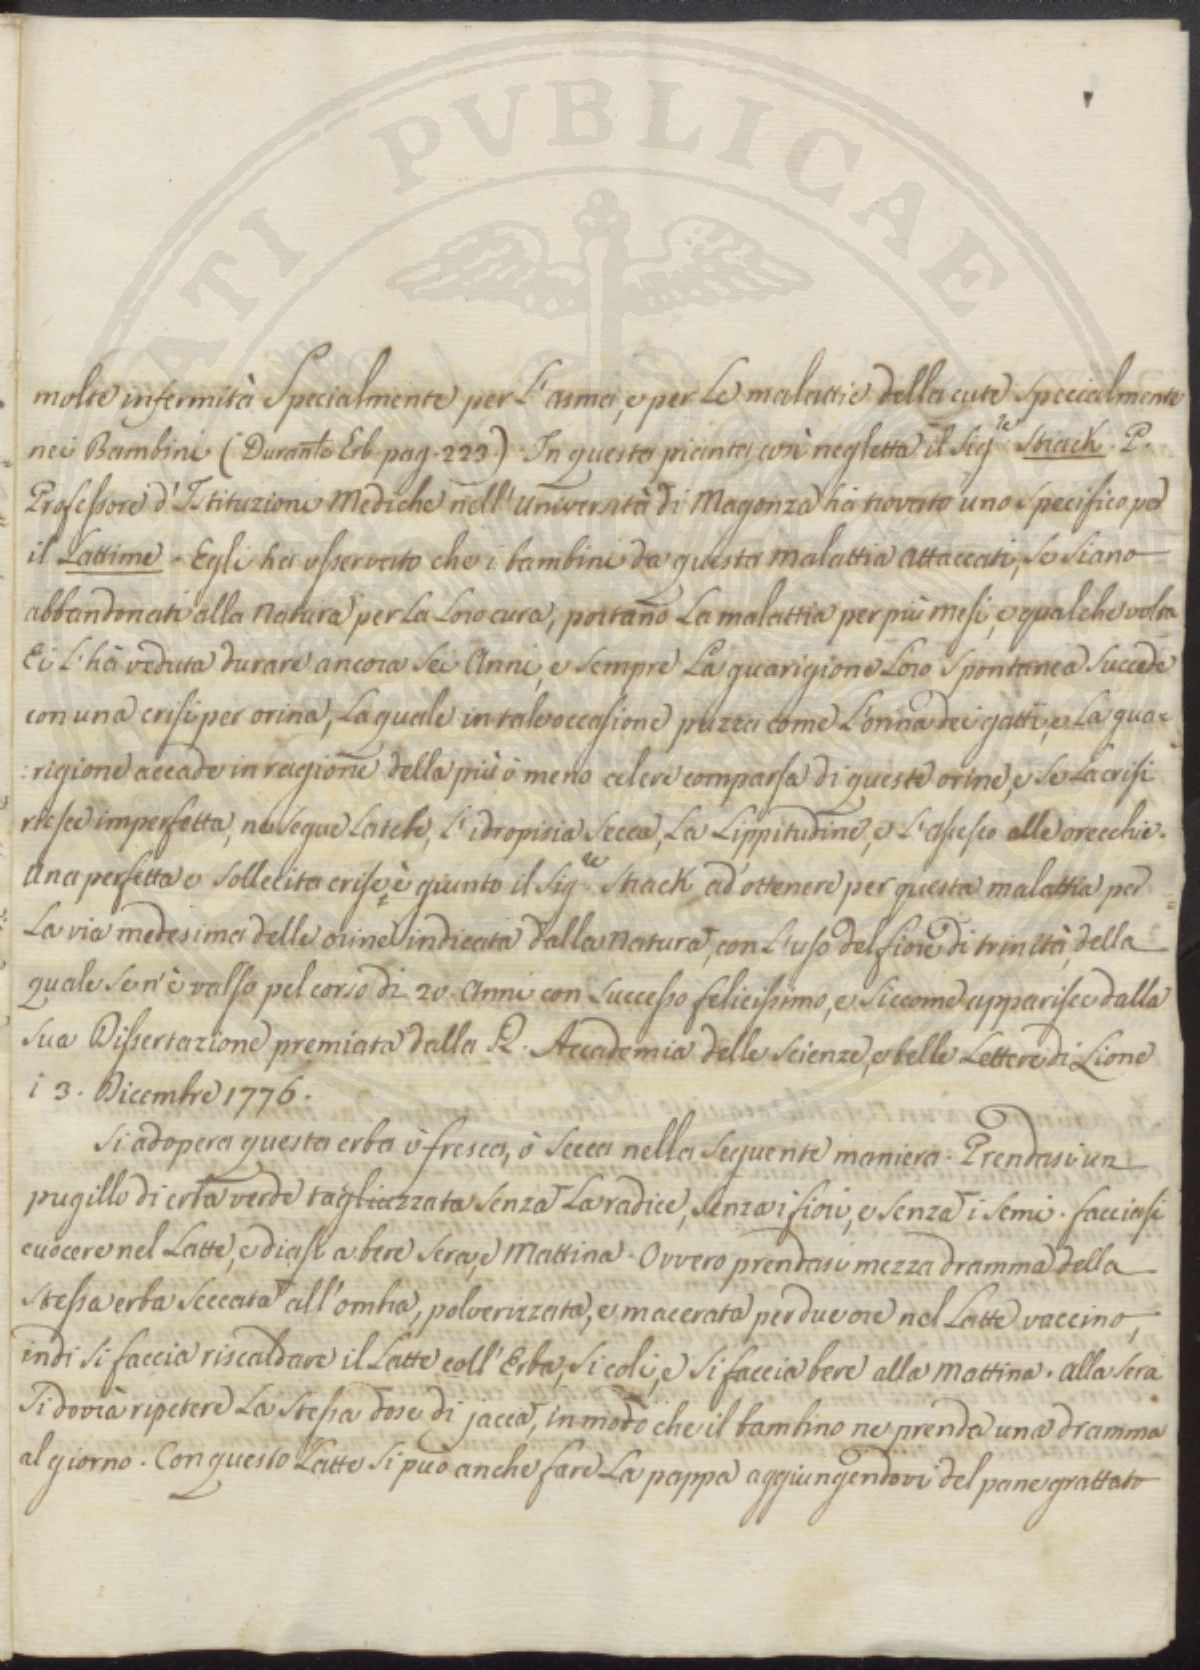 ATI PVBLICAE
molte infermità Specialmente per L'asma, e per Le malattie della cute specialmente
nei Bambini (Durante Erb. pag. 223.) In questa pianta così negletta il Sig.re Strack. P.
Professore d'Istituzioni Mediche nell'Università di Magonza hà trovato uno specifico per
il Lattime. Egli ha osservato che i bambini da questa malattia attaccati, se siano
abbandonati alla natura per La Loro cura, portano La malattia per più mesi, e qualche volta
Ei L'hà veduta durare ancora sei Anni, e sempre La guarigione Loro spontanea succede
con una crisi per orina, La quale in tale occasione puzza come L'orina dei gatti, e La gua=
:rigione accade in ragione della più ò meno celere comparsa di queste orine, e se La crisi
riesce imperfetta, ne segue La tebe, L'idropisia secca, La Lippitudine, e L'ascesso alle orecchie.
Una perfetta e sollecita crise è giunto il Sig.re Strack ad ottenere per questa malattia per
La via medesima delle orine indicata dalla natura, con L'uso del fiore di trinità, della
quale se n'è valso pel corso di 20. Anni con successo felicissimo, e siccome apparisce dalla
sua Dissertazione premiata dalla R. Accademia delle Scienze, e belle Lettere di Lione
i 3. Dicembre 1776.
Si adopera questa erba ò fresca, ò secca nella seguente maniera. Prendasi un
pugillo di erba verde tagliuzzata senza La radice, senza i fiori, e senza i semi. facciasi
cuocere nel Latte, e diasi a bere sera, e Mattina. Ovvero prendasi mezza dramma della
stessa erba seccata all'ombra, polverizzata, e macerata per due ore nel Latte vaccino,
indi si faccia riscaldare il Latte coll'Erba, si coli, e si faccia bere alla Mattina. alla sera
si dovrà ripetere La stessa dose di jacea, in modo che il bambino ne prenda una dramma
al giorno. Con questo Latte si può anche fare La pappa aggiungendovi del pane grattato